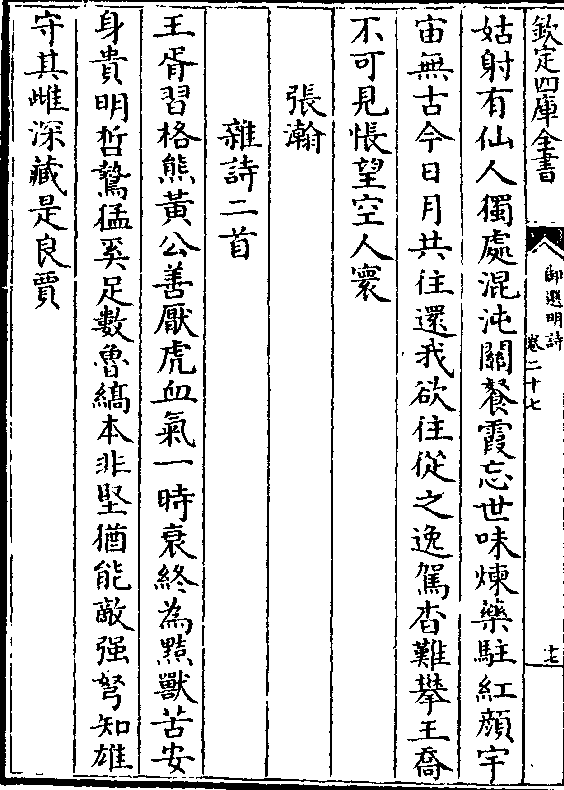 欽定四庫全書
御選明詩
卷二十七
十七
姑射有仙人獨處混沌關餐霞忘世味煉藥駐紅顏宇
宙無古今日月共往還我欲往從之逸駕杳難攀王喬
不可見悵望空人寰
張瀚
雜詩二首
王胥習格熊黃公善厭虎血氣一時衰終為㸃獸苦安
身貴明哲鷙猛奚足數魯縞本非堅猶能敵强弩知雄
守其雌深藏是良賈